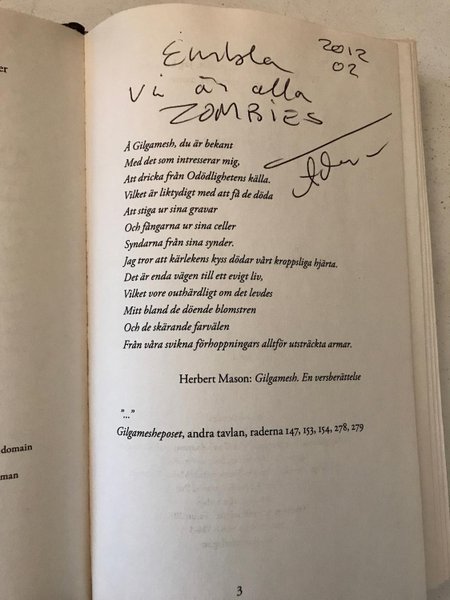 er
Embla
2012
02
vi är alla
ZOMBIES
Å Gilgamesh, du är bekant
Med det som intresserar mig,
Att dricka från Odödlighetens källa.
Vilket är liktydigt med att få de döda
Att stiga ur sina gravar
Och fångarna ur sina celler
Syndarna från sina synder.
Jag tror att kärlekens kyss dödar vårt kroppsliga hjärta.
Det är enda vägen till ett evigt liv,
Vilket vore outhärdligt om det levdes
Mitt bland de döende blomstren
Och de skärande farvälen
Från våra svikna förhoppningars alltför utsträckta armar.
Herbert Mason: Gilgamesh. En versberättelse
"..."
Gilgamesheposet, andra tavlan, raderna 147, 153, 154, 278, 279
domain
man
3